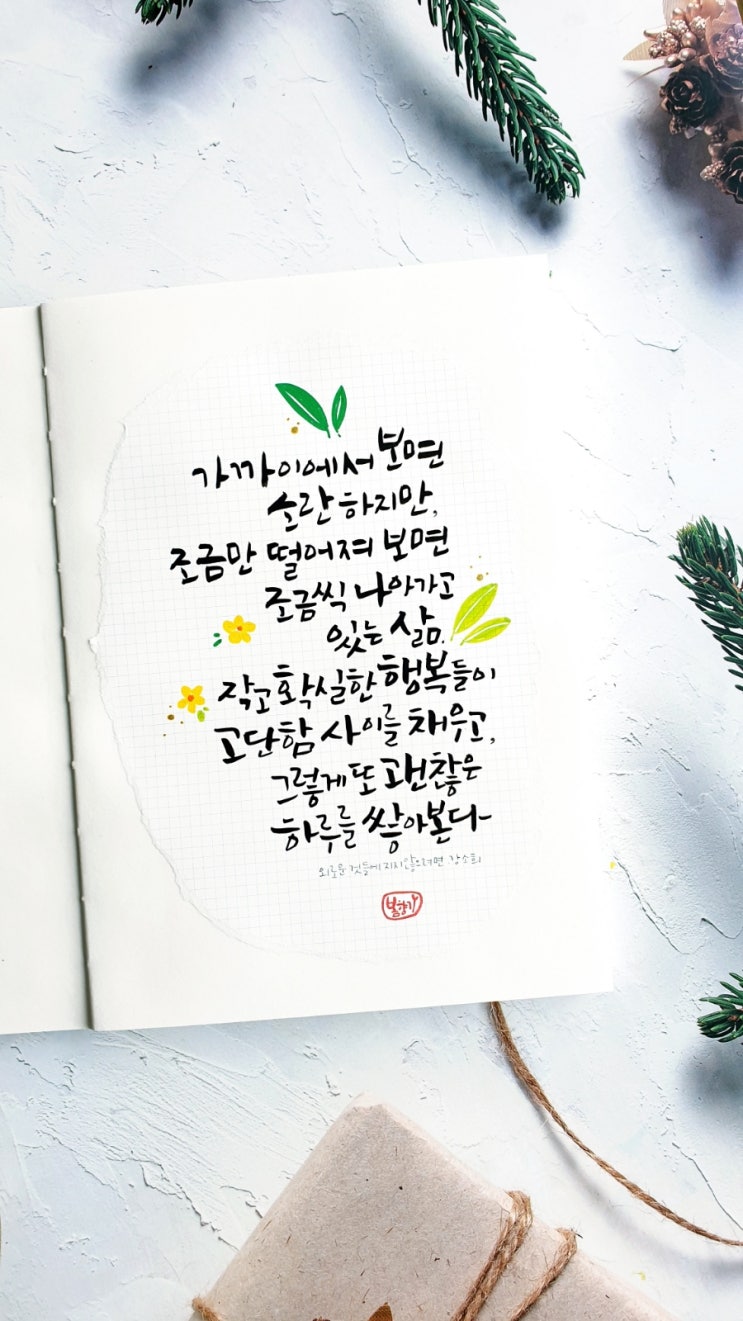 가까이에서 보면
소란 하지만,
조금만 떨어져 보면
조금씩 나아가고
있는 삶.
작고 확실한 행복들이
고단함 사이를 채우고,
그렇게 또 괜찮은
하루를 쌓아본다-
외로운 것들에 지지않으려면 강소희
봄향기